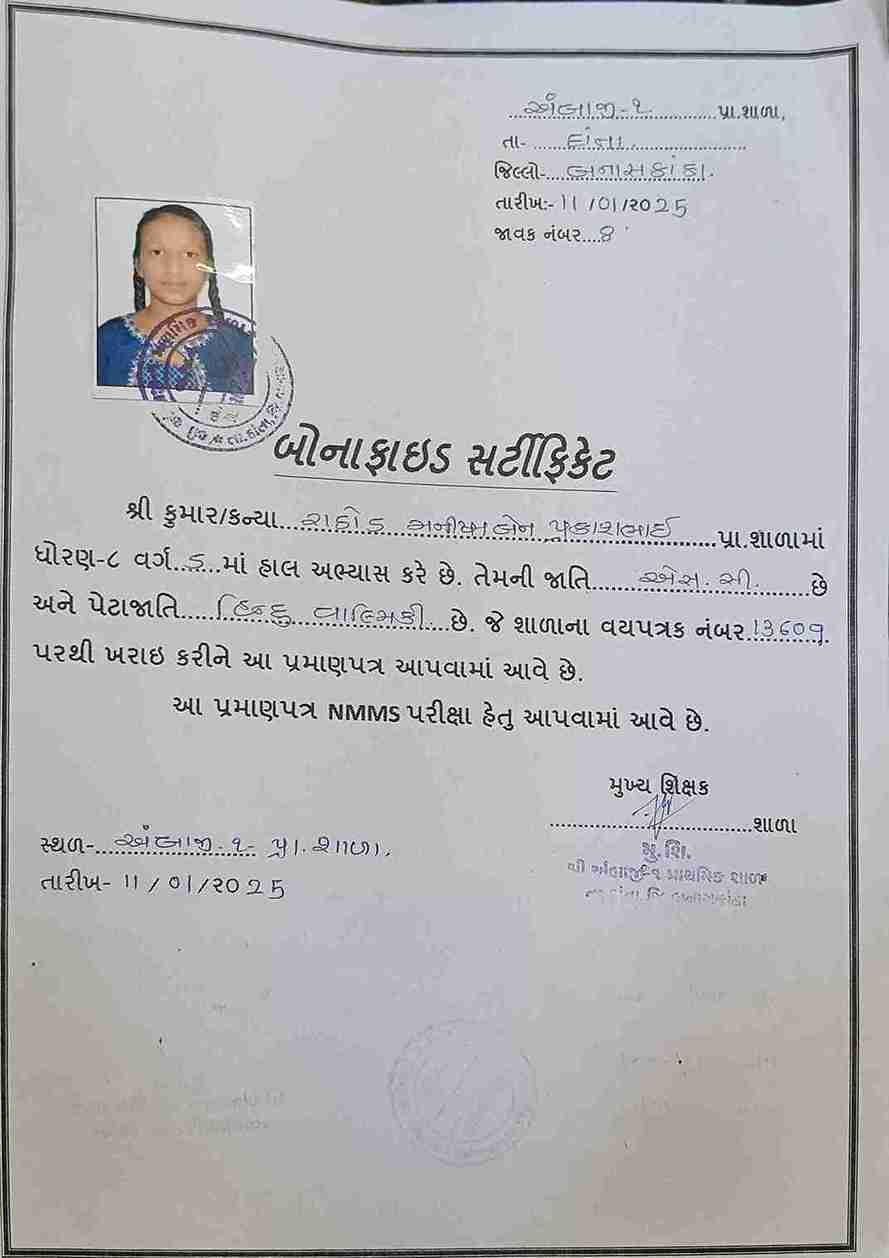 અંબાજી-૧ પ્રા.શાળા,
તા- દાંતા
જિલ્લો- બનાસકાંઠા.
તારીખ:- 11/01/૨૦25
જાવક નંબર....8
બોનાફાઇડ સર્ટીફિકેટ
શ્રી કુમાર/કન્યા... રાઠોડ મનીષાબેન પ્રકાશભાઈ ...પ્રા.શાળામાં
ધોરણ-૮ વર્ગ..ડ..માં હાલ અભ્યાસ કરે છે. તેમની જાતિ... એસ.સી. ...છે
અને પેટાજાતિ... હિન્દુ વાલ્મિકી ...છે. જે શાળાના વયપત્રક નંબર 13609
પરથી ખરાઇ કરીને આ પ્રમાણપત્ર આપવામાં આવે છે.
આ પ્રમાણપત્ર NMMS પરીક્ષા હેતુ આપવામાં આવે છે.
મુખ્ય શિક્ષક
...શાળા
સ્થળ-... અંબાજી-૧- પ્રા.શાળા.
તારીખ- 11/01/૨૦25
મુ.શિ.
શ્રી અંબાજી-૧ પ્રાથમિક શાળા